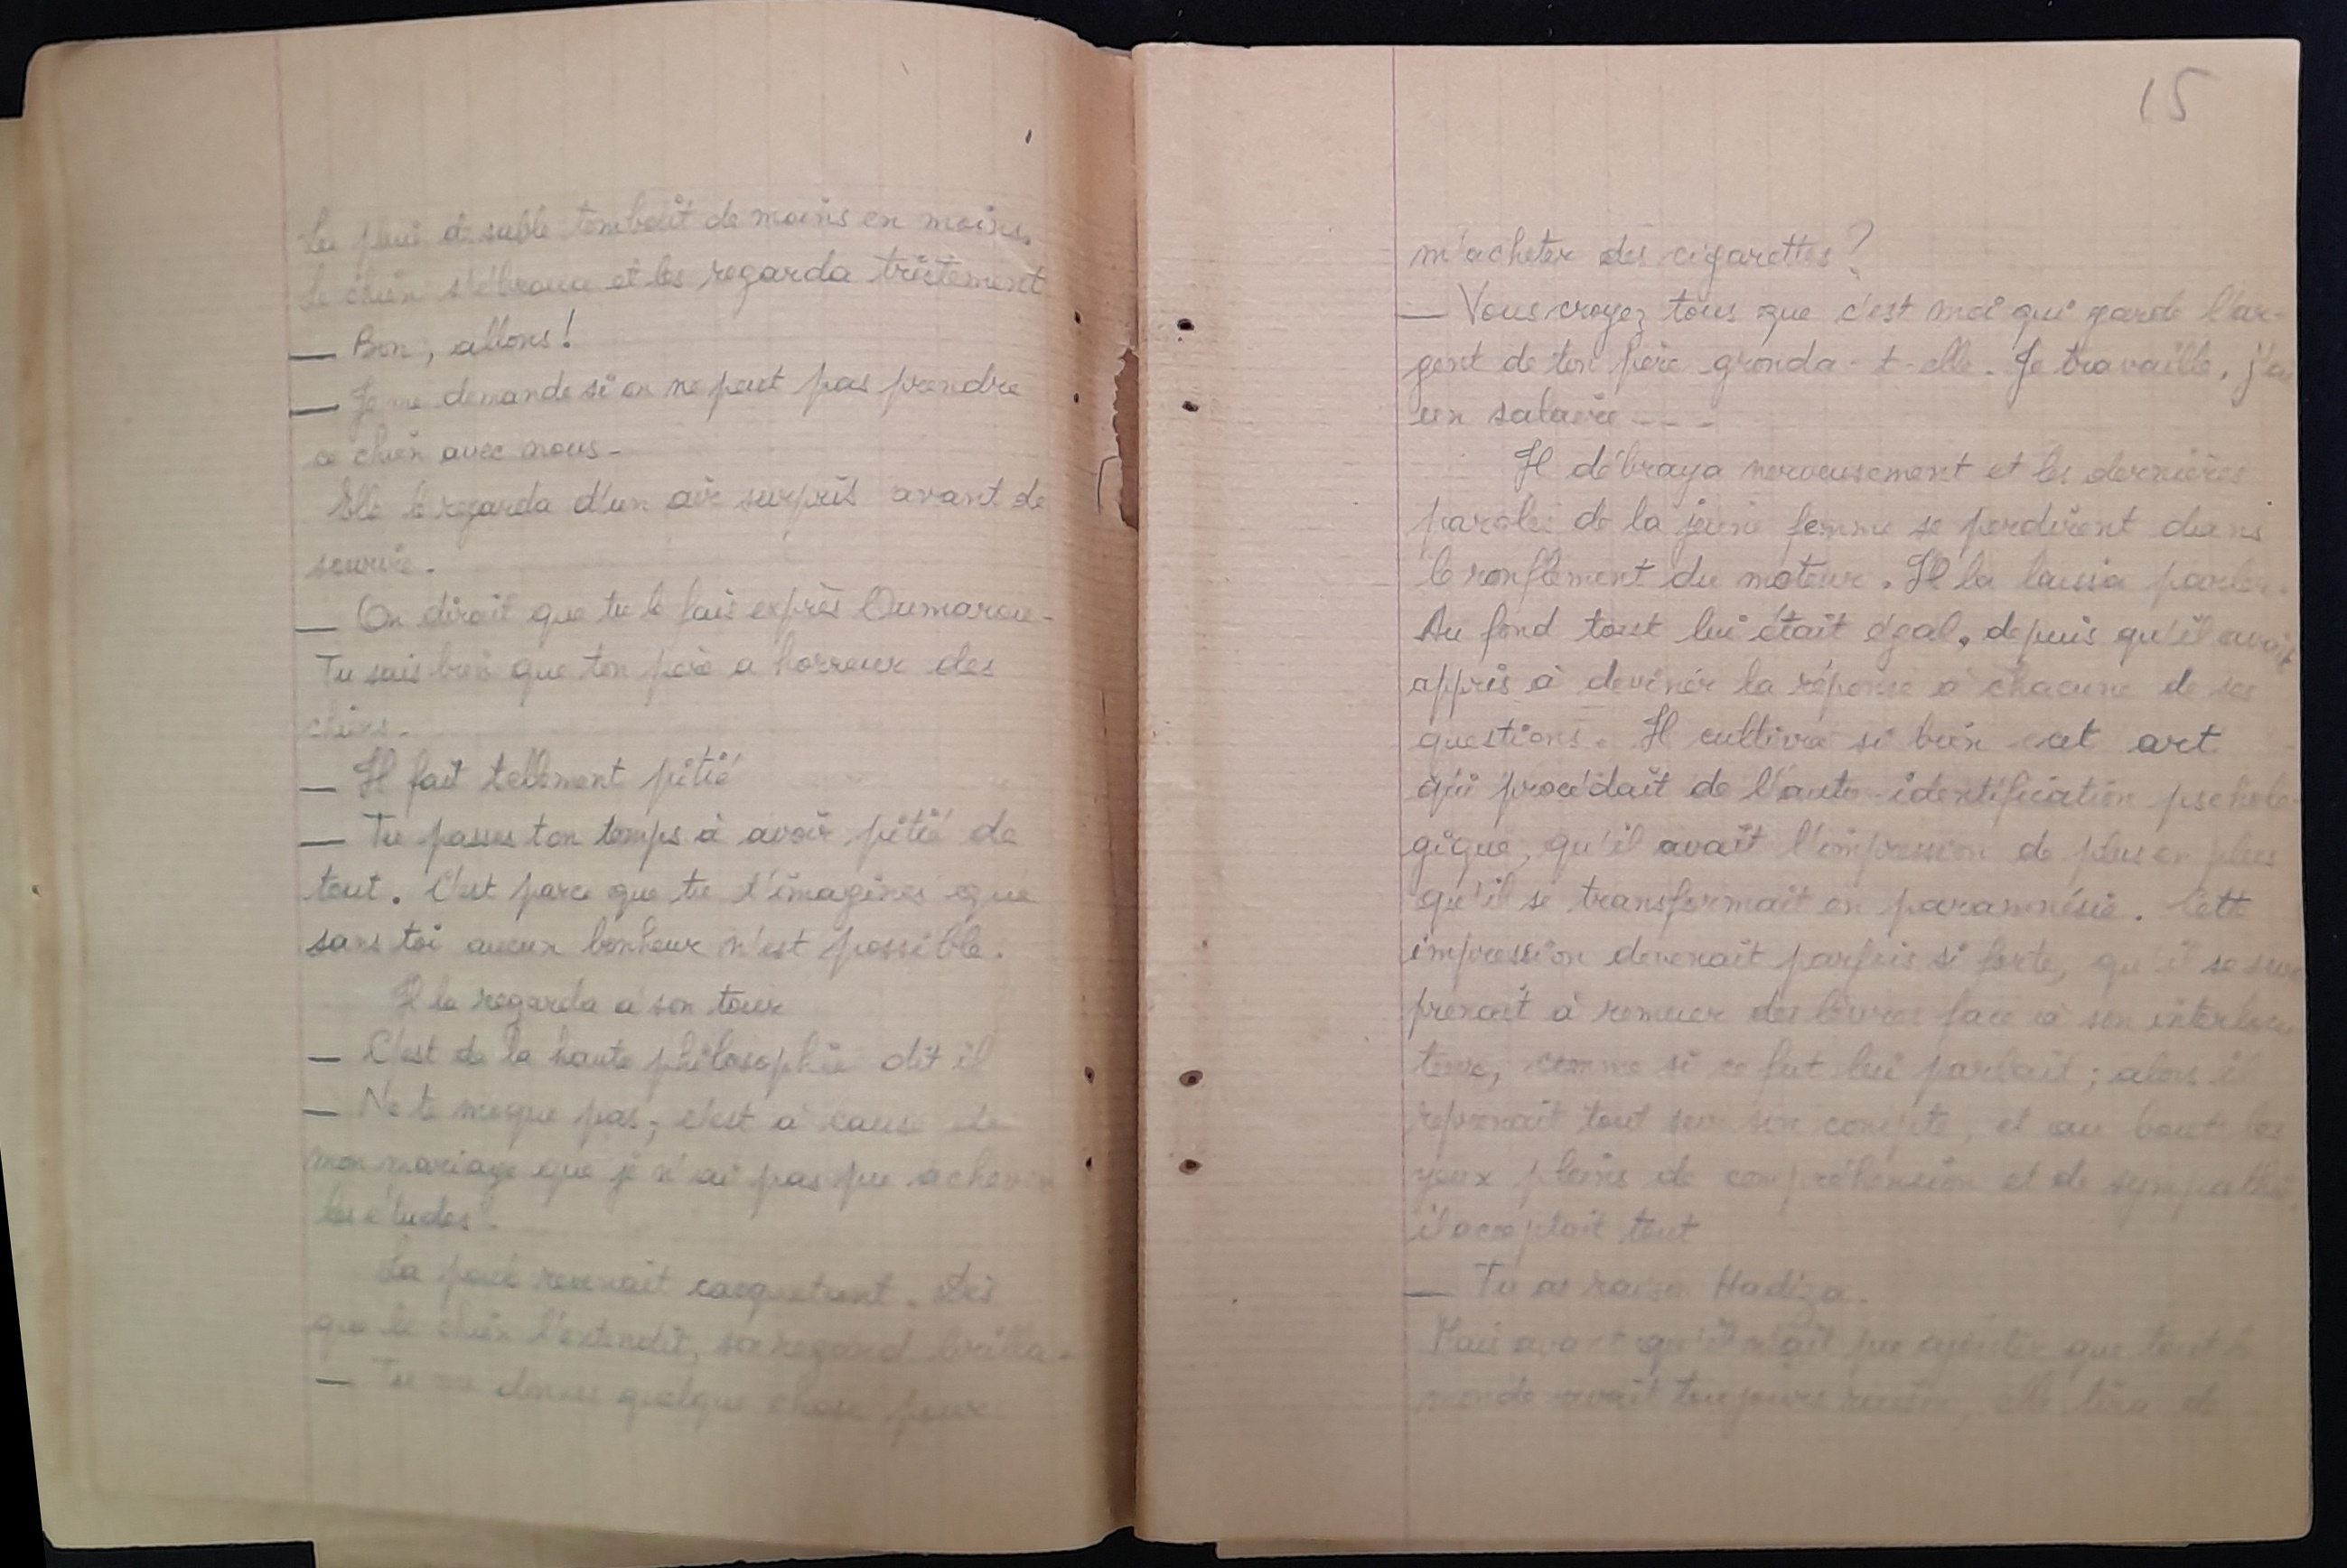 La pluie de sable tombait de moins en moins.
Le chien s'ébroua et les regarda tristement
— Bon, allons!
— Je me demande si on ne peut pas prendre
ce chien avec nous.
Elle le regarda d'un air surpris avant de
sourire.
— On dirait que tu le fais exprès Oumarou.
Tu sais bien que ton père a horreur des
chiens.
— Il fait tellement pitié
— Tu passes ton temps à avoir pitié de
tout. C'est parce que tu t'imagines que
sans toi aucun bonheur n'est possible.
Il la regarda à son tour
— C'est de la haute philosophie dit il
— Ne te moque pas; c'est à cause de
mon mariage que je n'ai pas pu achever
les études.
La revenait caquetant. Dès
que le chien l'entendit, son regard brilla.
— Tu me donnes quelque chose pour
15
m'acheter des cigarettes?
— Vous croyez tous que c'est moi qui garde l'ar-
gent de ton père gronda-t-elle. Je travaille, j'ai
un salaire ---
Il débraya nerveusement et les dernières
paroles de la jeune femme se perdirent dans
le ronflement du moteur. Il la laissa parler.
Au fond tout lui était égal, depuis qu'il avait
appris à deviner la réponse à chacune de ses
questions. Il cultiva si bien cet art
qui procédait de l'auto-identification pscholo-
gique, qu'il avait l'impression de plus en plus
qu'il se transformait en paramnésie. Cette
impression devenait parfois si forte, qu'il se sur
prenait à remuer des lèvres face à son interlocu
teur, comme si ce fut lui parlait; alors il
reprenait tout sur son compte, et au bout les
yeux pleins de compréhension et de sympathie,
il acceptait tout
— Tu as raison Hadiza.
Mais avant qu'il n'ait pu ajouter que tout le
monde avait toujours raison, elle tira de